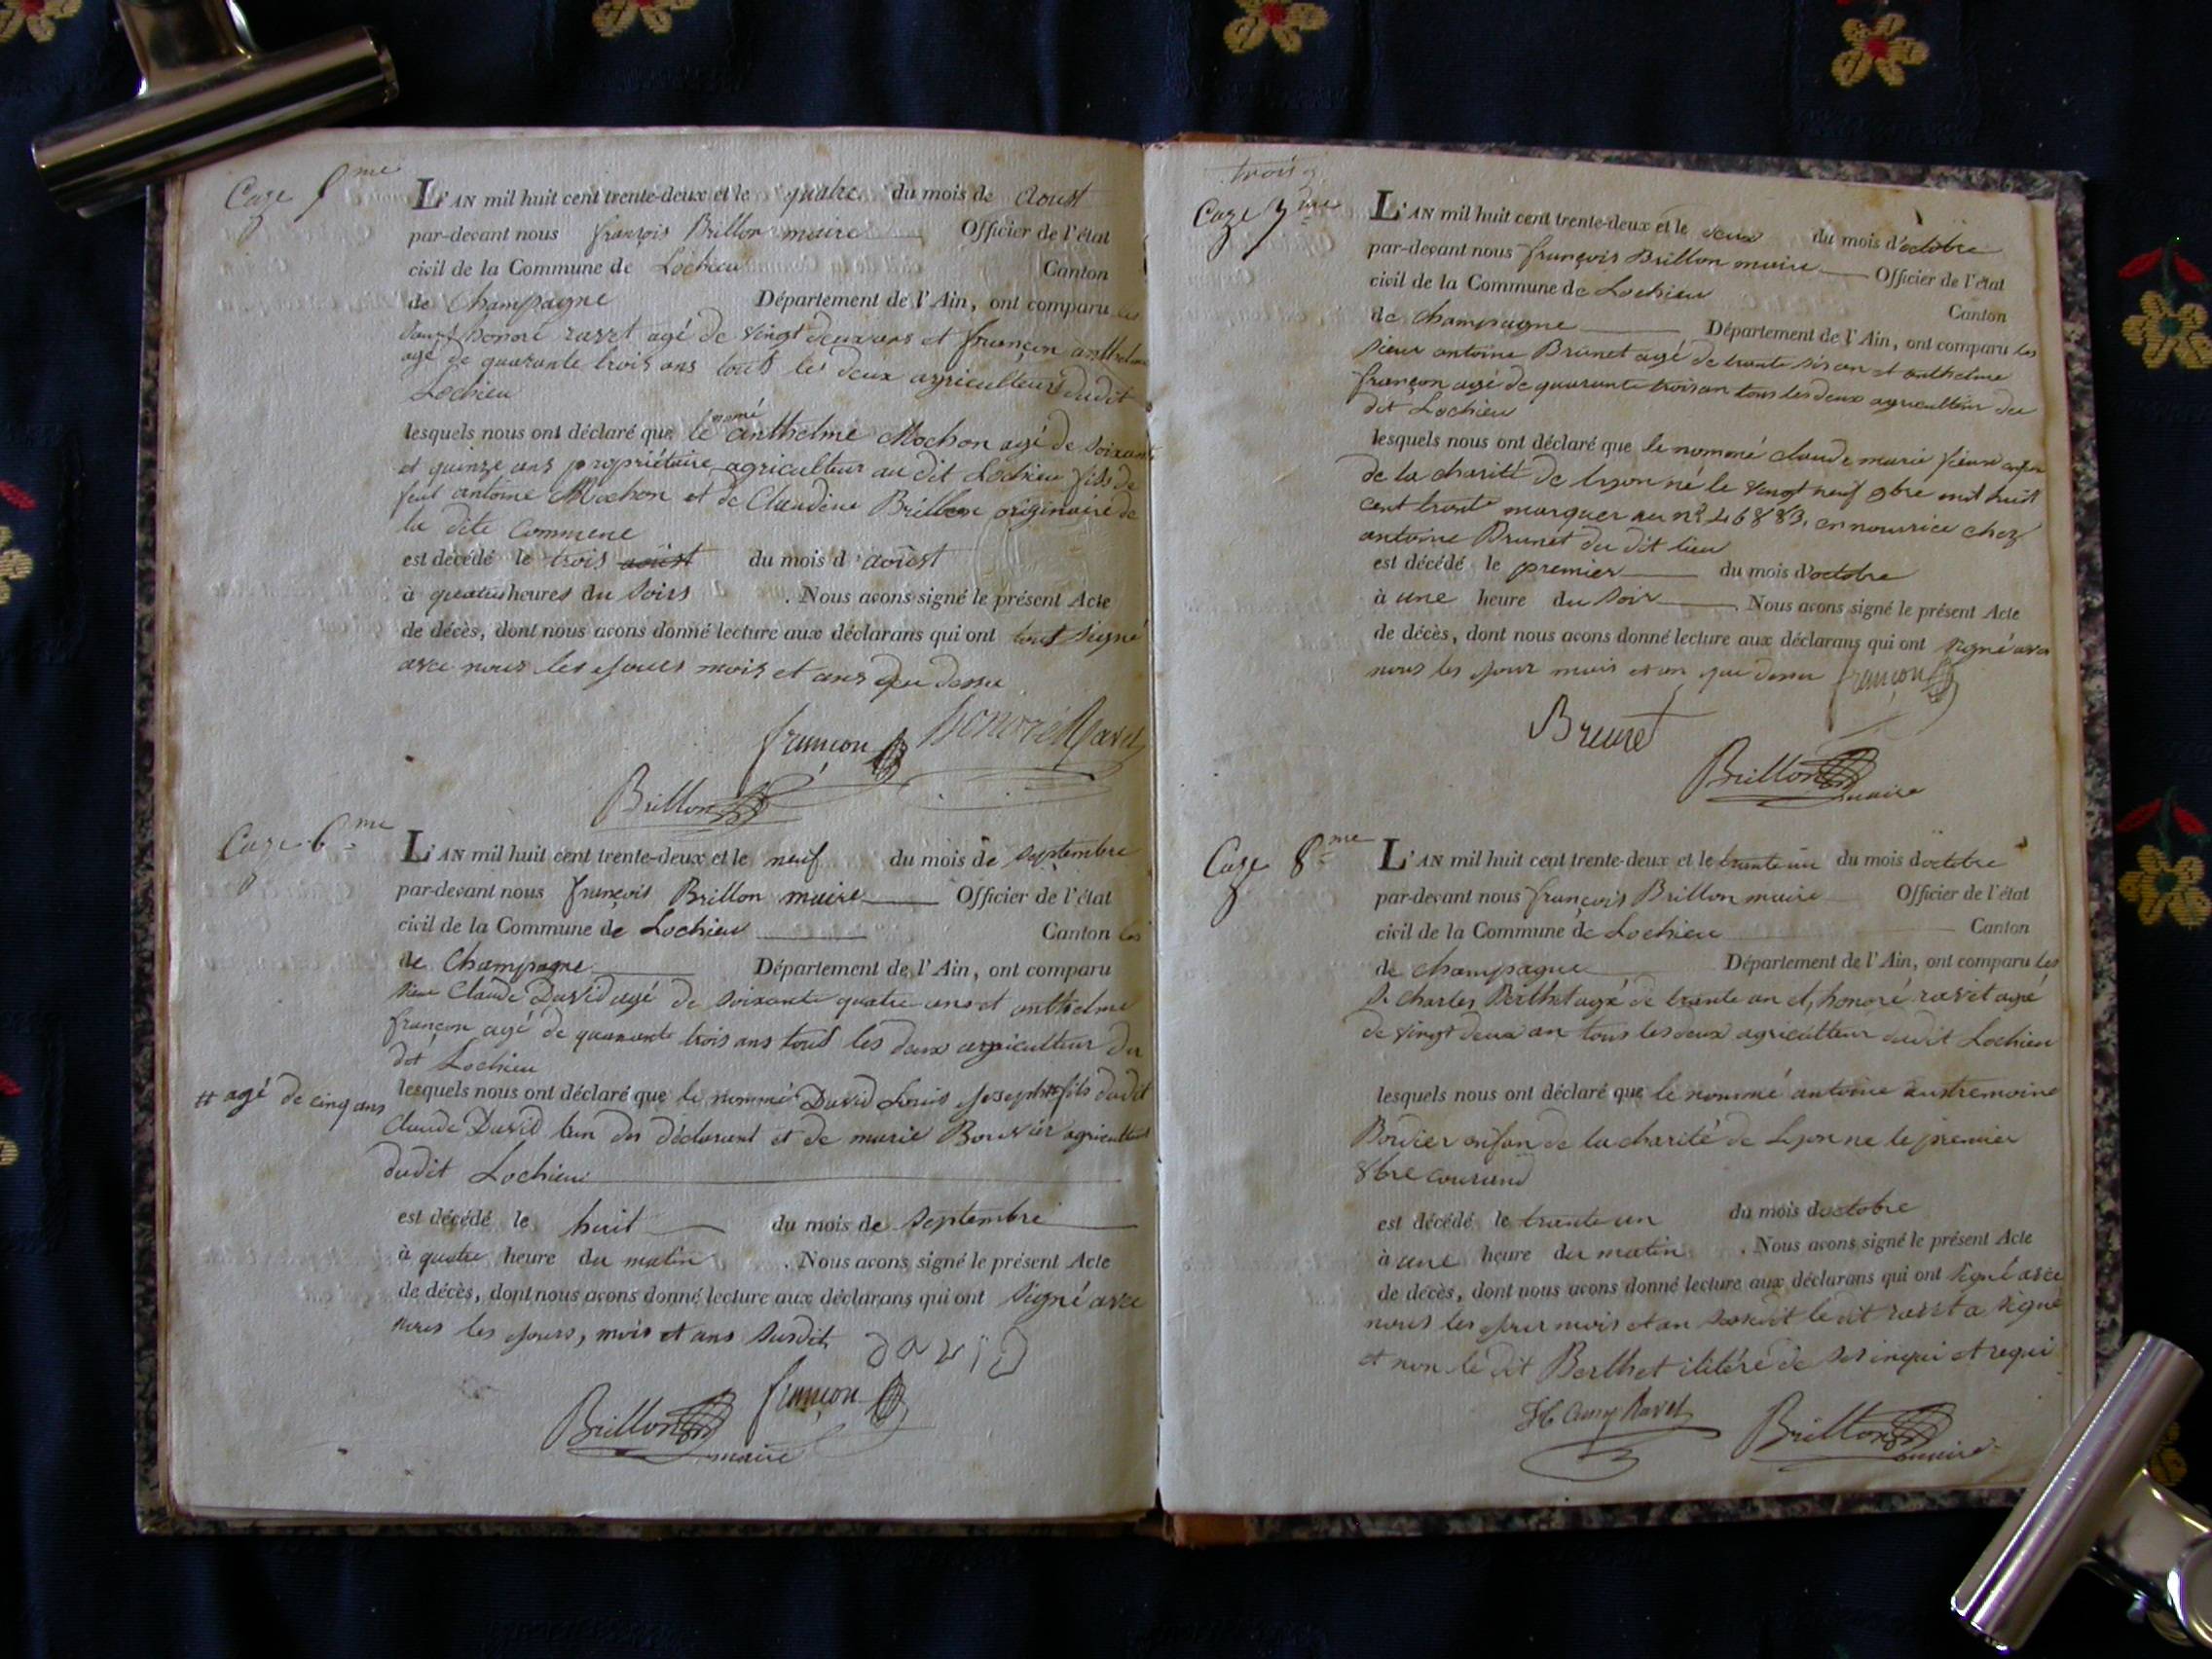 Caze 5me
L'AN mil huit cent trente-deux et le quatre du mois de Aoust
par-devant nous françois Brillon maire Officier de l'état
civil de la Commune de Lochieu Canton
de Champagne Département de l'Ain, ont comparu les
honoré ravet agé de vingt deux ans et françon anthelme
agé de quarante trois ans tout les deux agriculteurs dudit
Lochieu
lesquels nous ont déclaré que le nomé anthelme Mochon agé de soixante
et quinze ans propriétaire agriculteur au dit Lochieu fils de
feut antoine Mochon et de Claudine Brillon originaire de
la dite Commune
est décédé le trois aoust du mois d'aoust
à quatre heures du soirs . Nous avons signé le présent Acte
de décès, dont nous avons donné lecture aux déclarans qui ont tout signé
avec nous les jours mois et ans que dessu
françon honoré Ravet
Brillon
Caze 6me
L'AN mil huit cent trente-deux et le neuf du mois de septembre
par-devant nous françois Brillon maire Officier de l'état
civil de la Commune de Lochieu Canton les
de Champagne Département de l'Ain, ont comparu
sieur Claude David agé de soixante quatre ans et anthelme
françon agé de quarante trois ans tout les deux agriculteur du
dit Lochieu
# agé de cinq ans
lesquels nous ont déclaré que le nommé David Louis joseph # fils dudit
Claude David lun des déclarant et de marie Bouvier agriculteur
dudit Lochieu
est décédé le huit du mois de septembre
à quatre heure du matin . Nous avons signé le présent Acte
de décès, dont nous avons donné lecture aux déclarans qui ont signé avec
nous les jours, mois et ans susdit
david
françon
Brillon maire
trois
Caze 7me
L'AN mil huit cent trente-deux et le deux du mois d'octobre
par-devant nous françois Brillon maire Officier de l'état
civil de la Commune de Lochieu
Canton
de champagne Département de l'Ain, ont comparu les
sieur antoine Brunet agé de trante sis an et anthelme
françon agé de quarante trois an tous les deux agriculteur du
dit Lochieu
lesquels nous ont déclaré que le nommé claude marie
de la charité de lyon né le vingt neuf 9bre mil huit
cent trante marquer au n° 46883, en nourrice chez
antoine Brunet du dit lieu
est décédé le premier du mois d'octobre
à une heure du soir . Nous avons signé le présent Acte
de décès, dont nous avons donné lecture aux déclarans qui ont signé avec
nous les jour mois et an que dessu françon
Brunet
Brillon maire
Caze 8me
L'AN mil huit cent trente-deux et le trante un du mois doctobre
par-devant nous françois Brillon maire Officier de l'état
civil de la Commune de Lochieu Canton
de champagne Département de l'Ain, ont comparu les
s. charles Berthet agé de trante an et, honoré ravet agé
de vingt deux an tous les deux agriculteur dudit Lochieu
lesquels nous ont déclaré que le nommé antoine austremoine
Bouvier enfan de la charité de Lyon ne le premier
8bre courand
est décédé le trante un du mois doctobre
à une heure du matin . Nous avons signé le présent Acte
de décès, dont nous avons donné lecture aux déclarans qui ont signé avec
nous les jour mois et an susdit le dit ravet a signé
et non le dit Berthet ilitéré de ses enqui et requi
Ravet Brillon maire